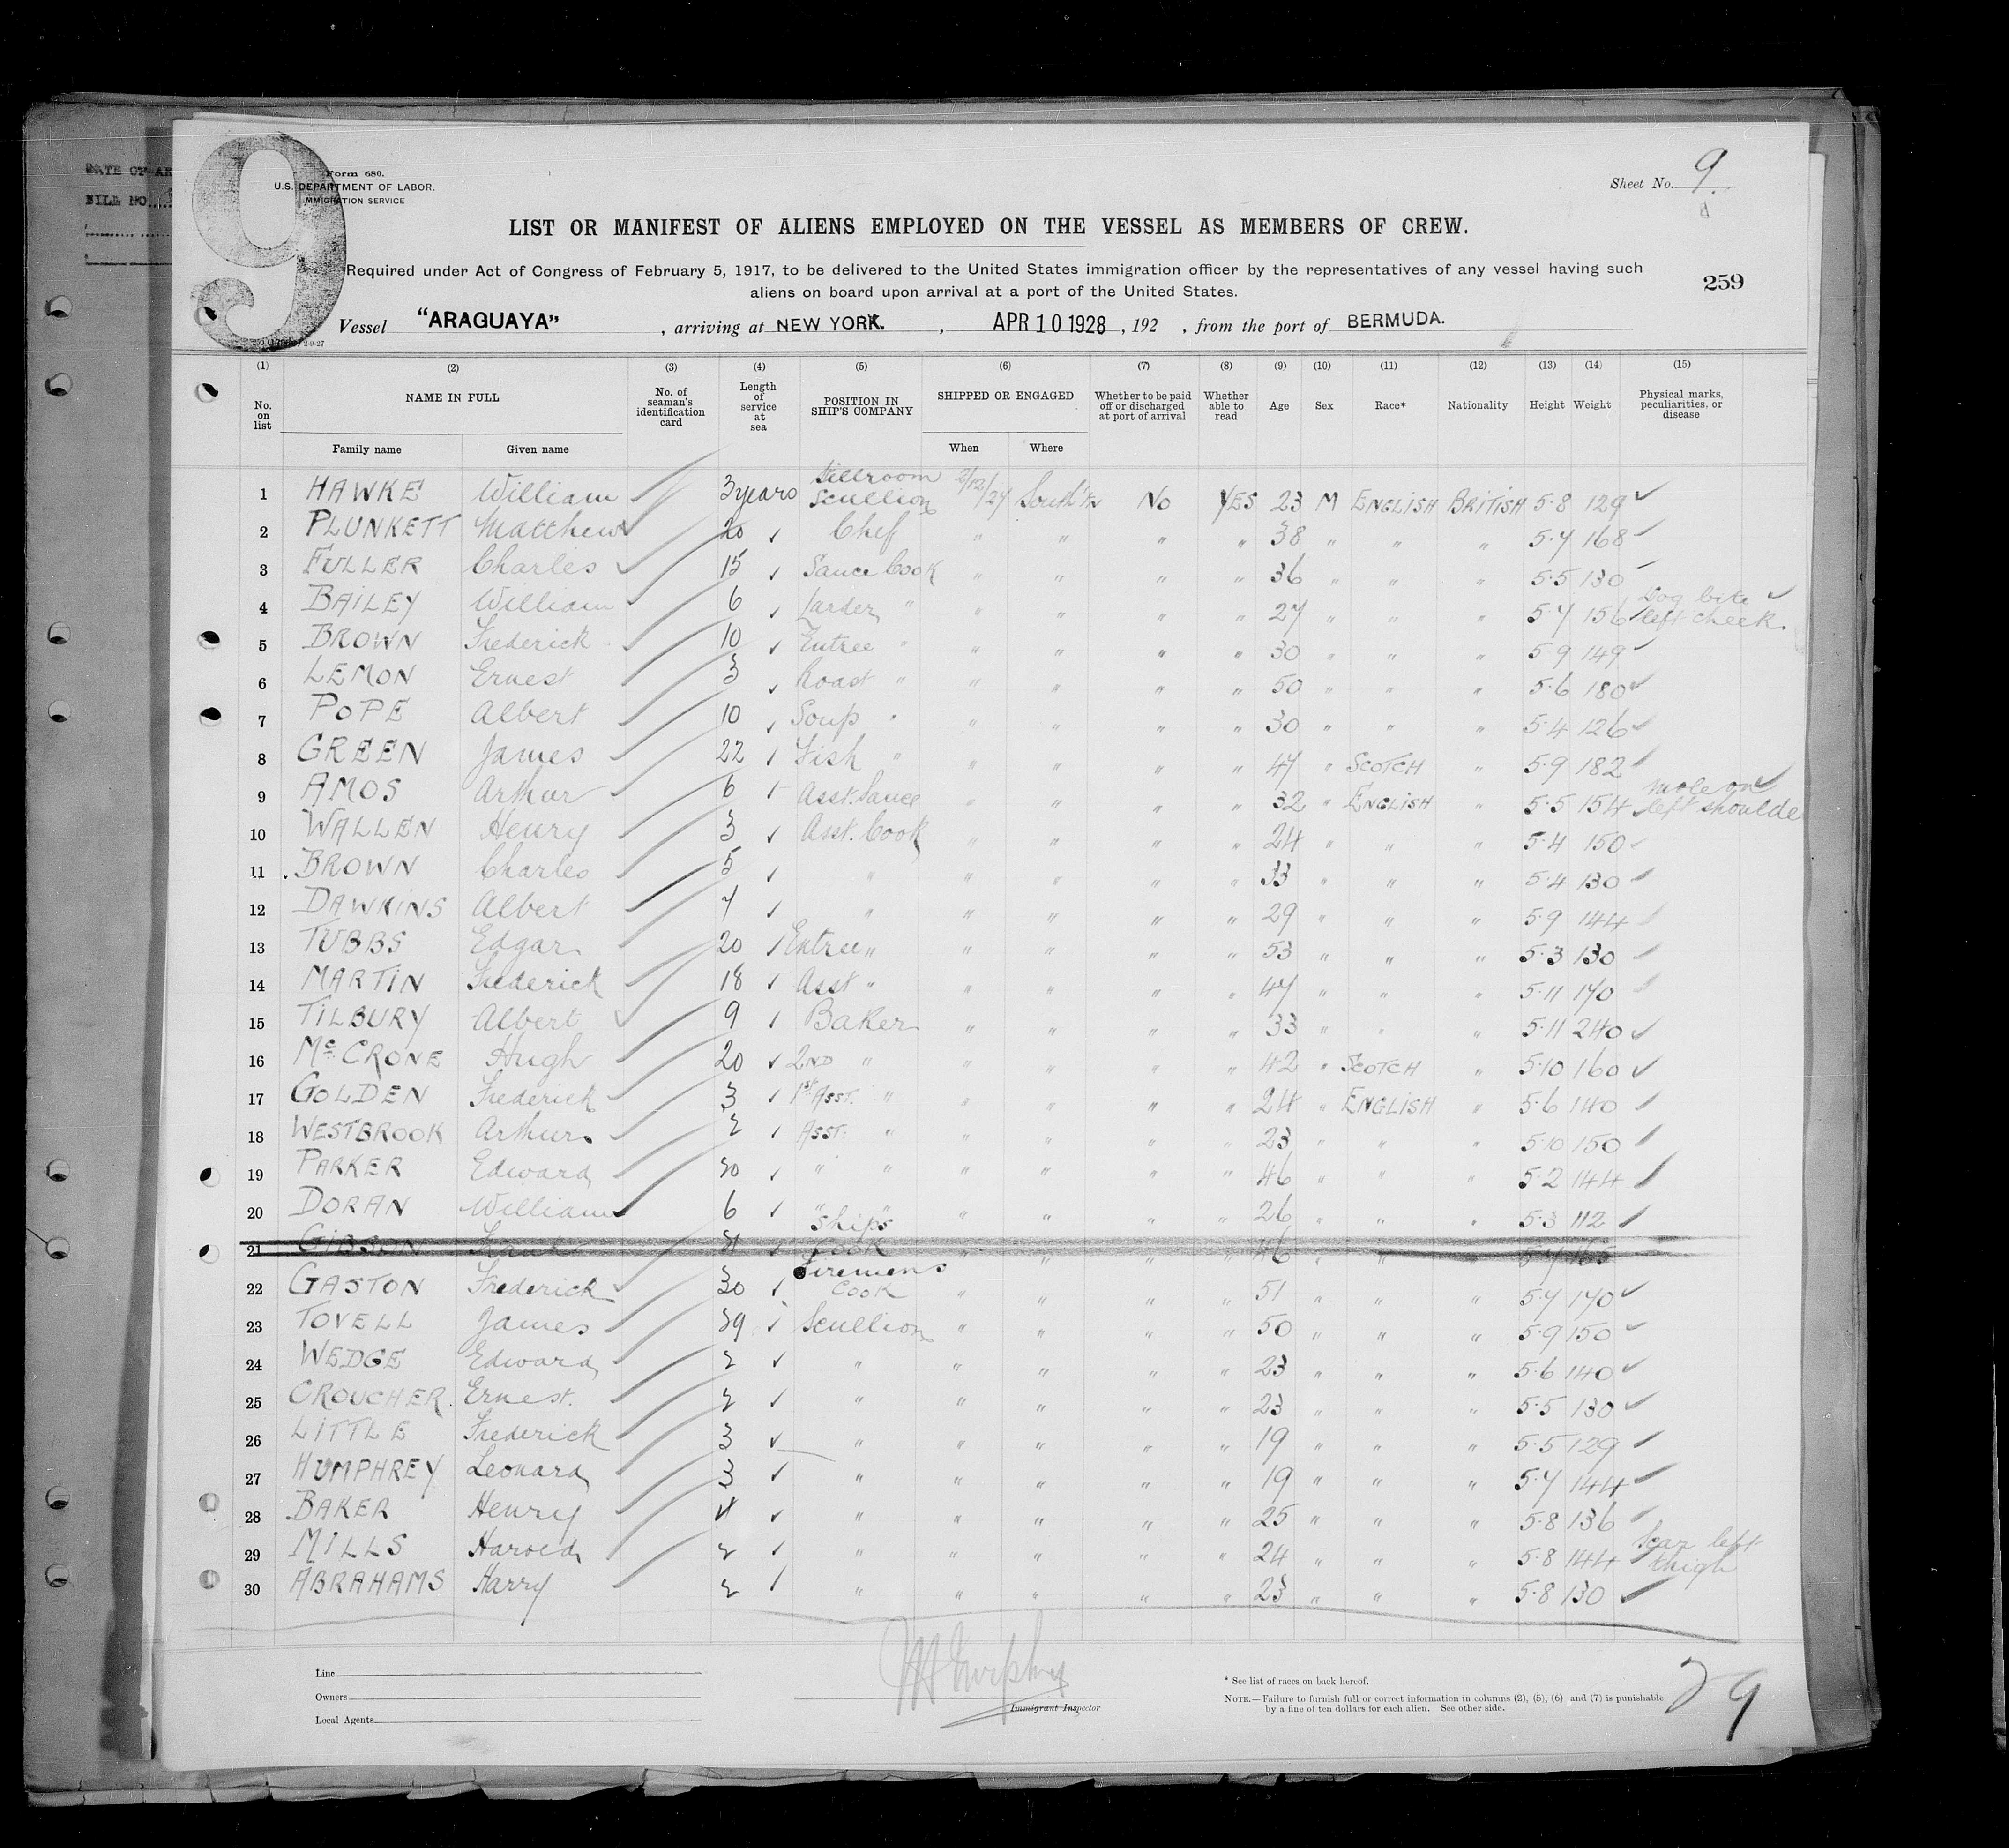 DATE OF AR
BILL NO.
9
Form 680.
U.S. DEPARTMENT OF LABOR.
IMMIGRATION SERVICE
Sheet No. 9.
LIST OR MANIFEST OF ALIENS EMPLOYED ON THE VESSEL AS MEMBERS OF CREW.
Required under Act of Congress of February 5, 1917, to be delivered to the United States immigration officer by the representatives of any vessel having such
aliens on board upon arrival at a port of the United States.
259
Vessel "ARAGUAYA", arriving at NEW YORK., APR 10 1928, 192 , from the port of BERMUDA.
(1) (2) (3) (4) (5) (6) (7) (8) (9) (10) (11) (12) (13) (14) (15)
No. on list NAME IN FULL Family name Given name No. of seaman's identification card Length of service at sea POSITION IN SHIP'S COMPANY SHIPPED OR ENGAGED When Where Whether to be paid off or discharged at port of arrival Whether able to read Age Sex Race* Nationality Height Weight Physical marks, peculiarities, or disease
1 HAWKE William 3 years Stillroom Scullion 2/12/27 South'tn No YES 23 M ENGLISH BRITISH 5-8 129
2 PLUNKETT Matthew 20 Chef " " " " 38 " " " 5-7 168
3 FULLER Charles 15 Sauce Cook " " " " 36 " " " 5-5 130
4 BAILEY William 6 Larder " " " " " 27 " " " 5-7 156 Dog bite left cheek.
5 BROWN Frederick 10 Entree " " " " " 30 " " " 5-9 149
6 LEMON Ernest 3 Roast " " " " " 50 " " " 5-6 180
7 POPE Albert 10 Soup " " " " " 30 " " " 5-4 126
8 GREEN James 22 Fish " " " " " 47 " SCOTCH " 5-9 182
9 AMOS Arthur 6 Asst. Sauce " " " " 32 " ENGLISH " 5-5 154 mole on left shoulde
10 WALLEN Henry 3 Asst. Cook " " " " 24 " " " 5-4 150
11 BROWN Charles 5 " " " " " 33 " " " 5-4 130
12 DAWKINS Albert 7 " " " " " 29 " " " 5-9 144
13 TUBBS Edgar 20 Entree " " " " " 53 " " " 5-3 130
14 MARTIN Frederick 18 Asst " " " " " 47 " " " 5-11 170
15 TILBURY Albert 9 Baker " " " " 33 " " " 5-11 240
16 McCRONE Hugh 20 2ND " " " " " 42 " SCOTCH " 5-10 160
17 GOLDEN Frederick 3 1st Asst. " " " " " 24 " ENGLISH " 5-6 140
18 WESTBROOK Arthur 2 ASST. " " " " " 23 " " " 5-10 150
19 PARKER Edward 30 " " " " " " 46 " " " 5-2 144
20 DORAN William 6 " " " " " " 26 " " " 5-3 112
21 GIBSON Ships Cook " " " " 46 " " " 165
22 GASTON Frederick 30 Firemens Cook " " " " 51 " " " 5-7 170
23 TOVELL James 39 Scullion " " " " 50 " " " 5-9 150
24 WEDGE Edward 2 " " " " " 23 " " " 5-6 140
25 CROUCHER. Ernest. 2 " " " " " 23 " " " 5-5 130
26 LITTLE Frederick 3 " " " " " 19 " " " 5-5 129
27 HUMPHREY Leonard 3 " " " " " 19 " " " 5-7 144
28 BAKER Henry 4 " " " " " 25 " " " 5-8 136
29 MILLS Harold 2 " " " " " 24 " " " 5-8 144 Scar left thigh
30 ABRAHAMS Harry 2 " " " " " 23 " " " 5-8 130
Line
Owners
Local Agents
Immigrant Inspector
* See list of races on back hereof.
NOTE.—Failure to furnish full or correct information in columns (2), (5), (6) and (7) is punishable
by a fine of ten dollars for each alien. See other side.
29